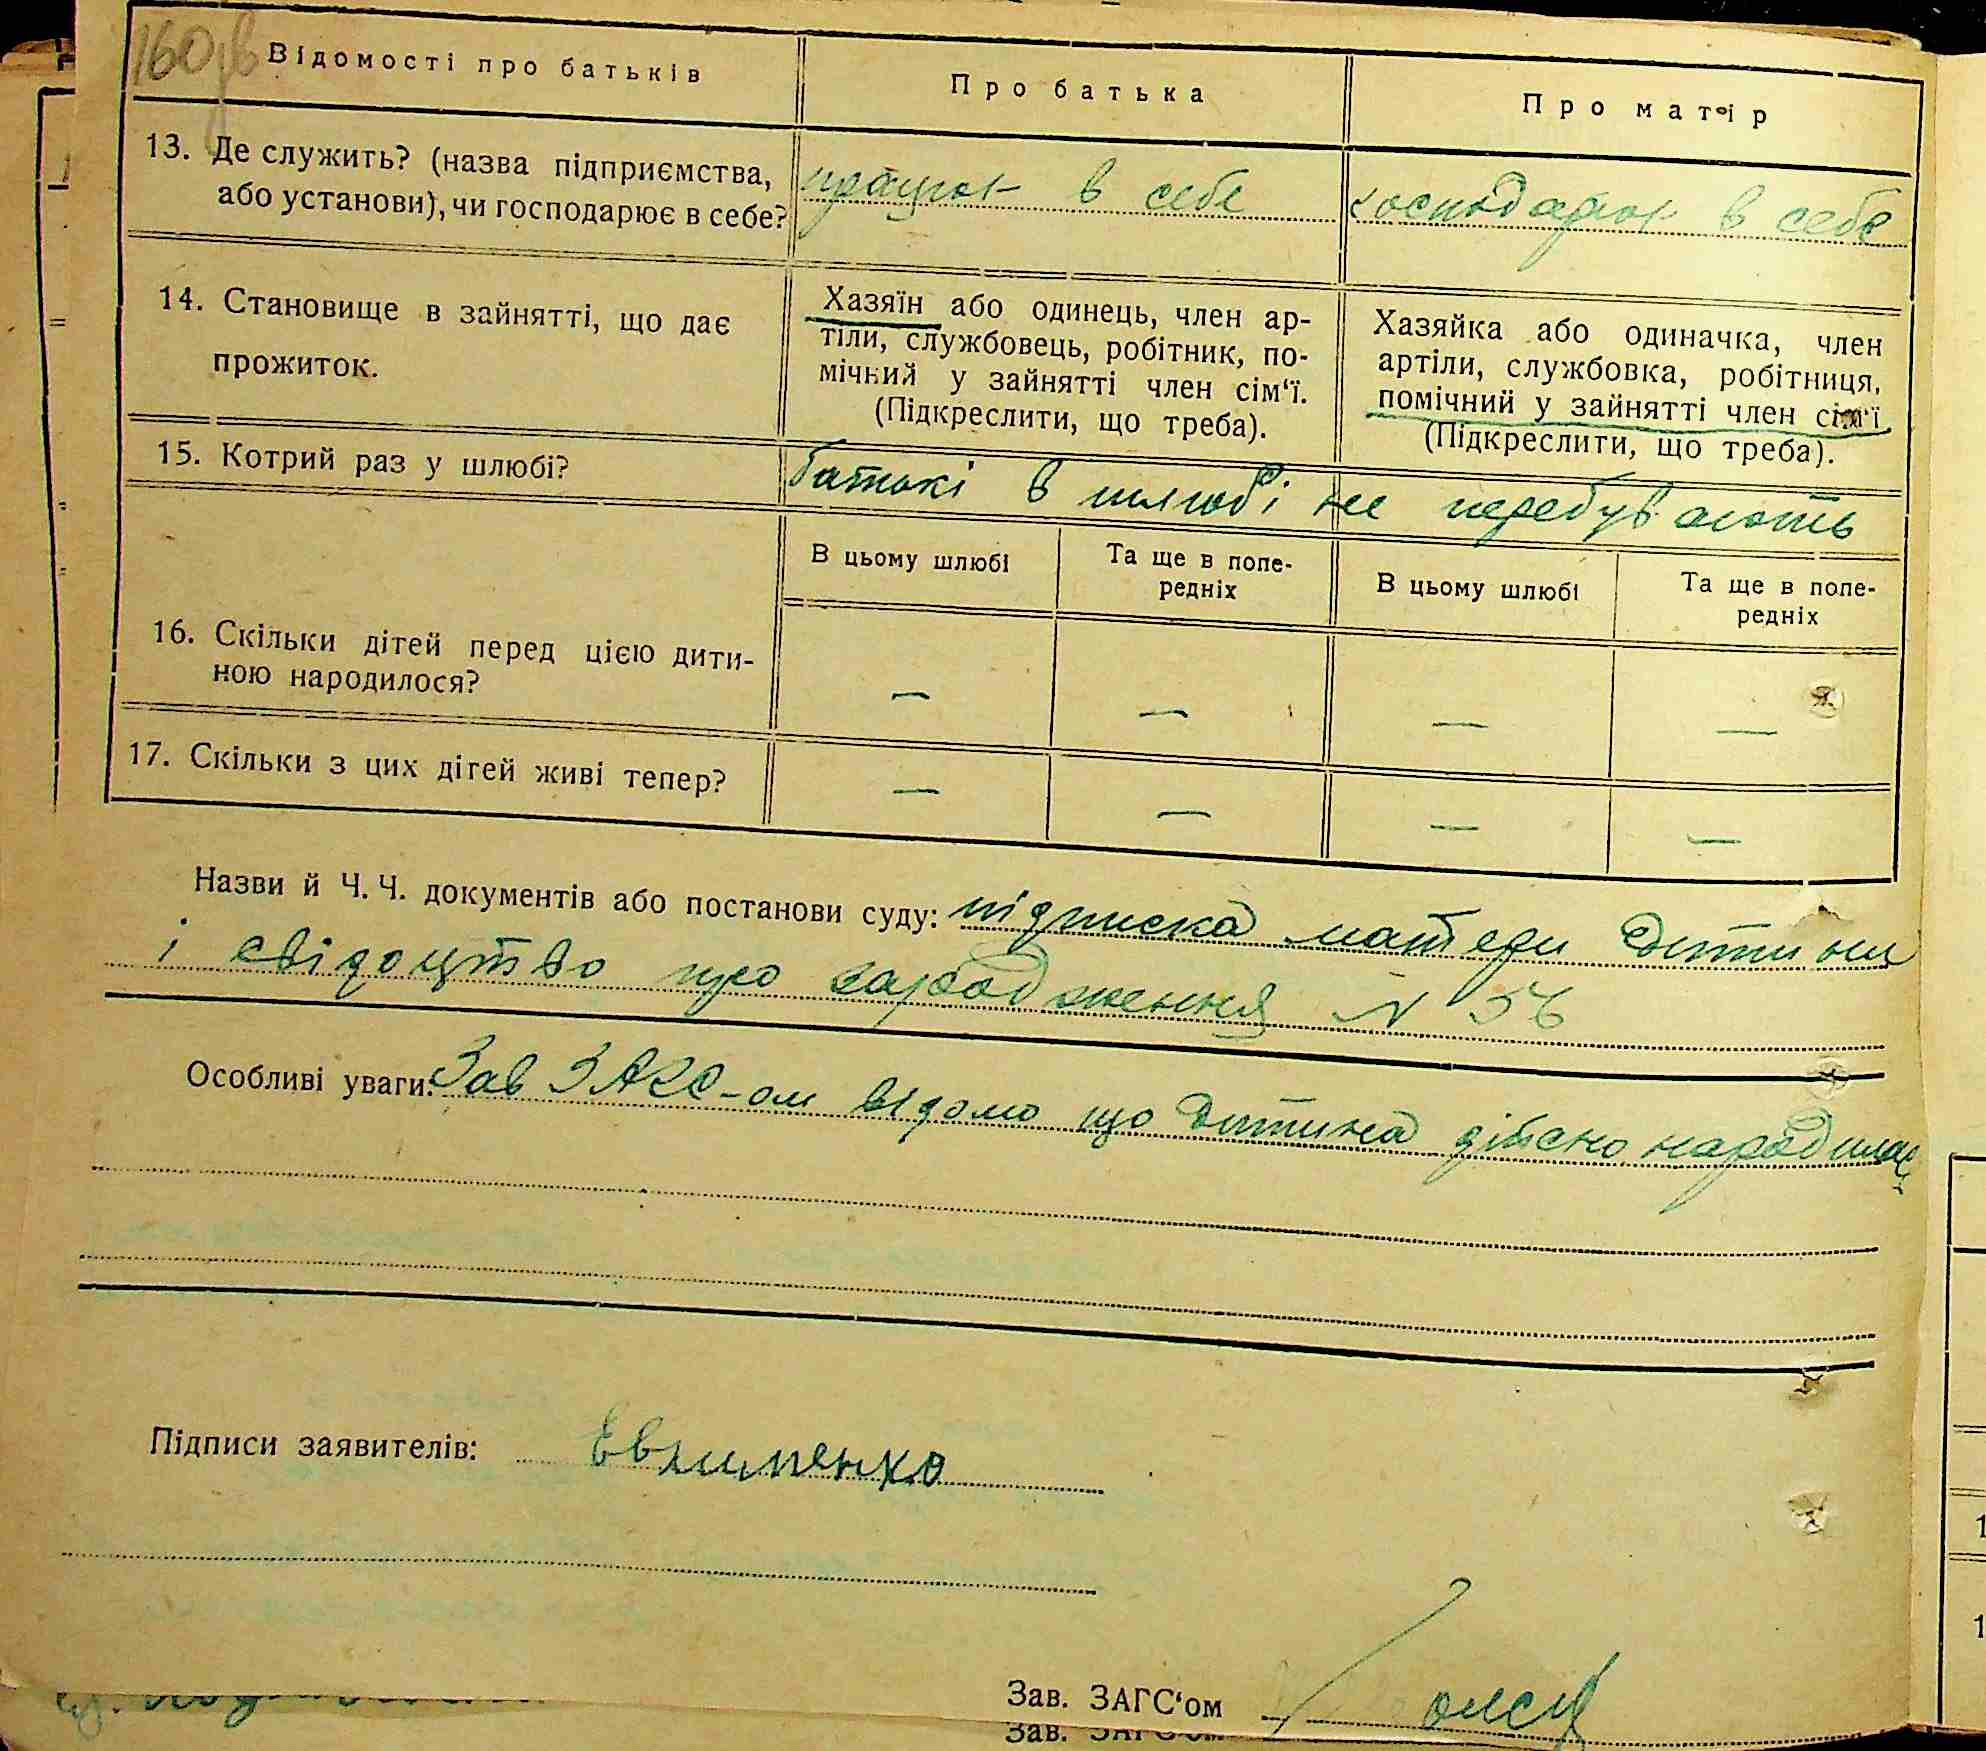 160зв
Відомості про батьків
Про батька
Про матір
13. Де служить? (назва підприємства,
або установи), чи господарює в себе?
працює в себе
господарює в себе
14. Становище в зайнятті, що дає
прожиток.
Хазяїн або одинець, член ар-
тіли, службовець, робітник, по-
мічний у зайнятті член сім‘ї.
(Підкреслити, що треба).
Хазяйка або одиначка, член
артіли, службовка, робітниця,
помічний у зайнятті член сім‘ї
(Підкреслити, що треба).
15. Котрий раз у шлюбі?
батькі в шлюбі не перебувають
В цьому шлюбі
Та ще в попе-
редніх
В цьому шлюбі
Та ще в попе-
редніх
16. Скільки дітей перед цією дити-
ною народилося?
— — — —
17. Скільки з цих дітей живі тепер?
— — — —
Назви й Ч. Ч. документів або постанови суду: підписка матери дитини
і свідоцтво про народження N 56
Особливі уваги: Зав ЗАГС-ом відомо що дитина дійсно народилас
Підписи заявителів: Евлименко
Зав. ЗАГС‘ом
Зав. ЗАГС‘ом